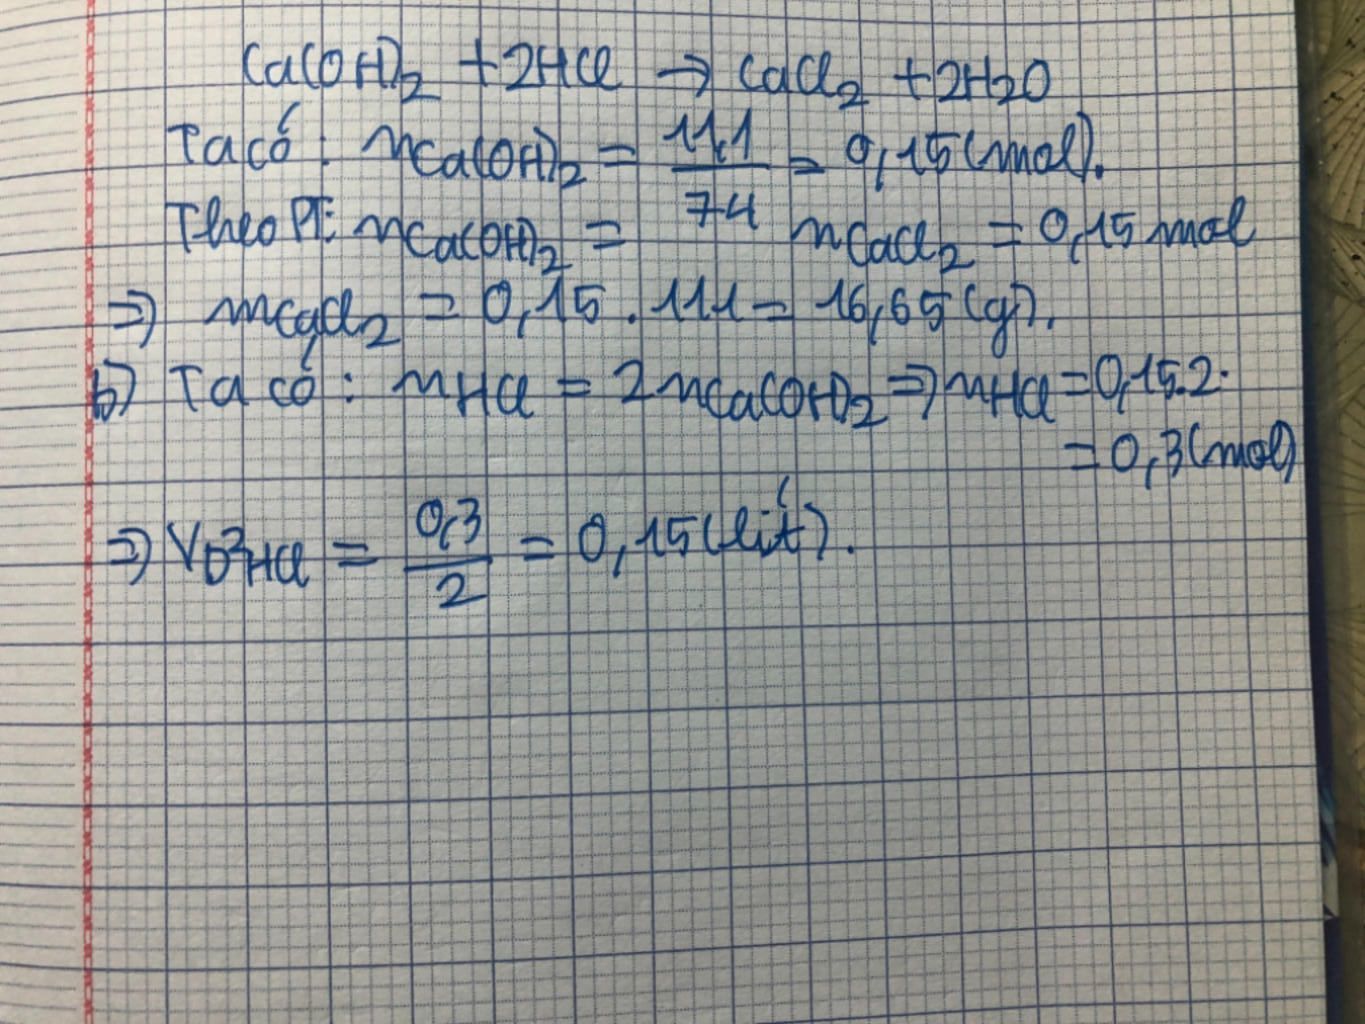 Ca(OH)2 + 2HCl → CaCl2 + 2H2O
Ta có: nCa(OH)2 = 11,1/74 = 0,15 (mol).
Theo PT: nCa(OH)2 = nCaCl2 = 0,15 mol
⇒ mCaCl2 = 0,15 . 111 = 16,65 (g).
b) Ta có: nHCl = 2nCa(OH)2 ⇒ nHCl = 0,15.2.
= 0,3 (mol)
⇒ VD²HCl = 0,3/2 = 0,15 (lít).